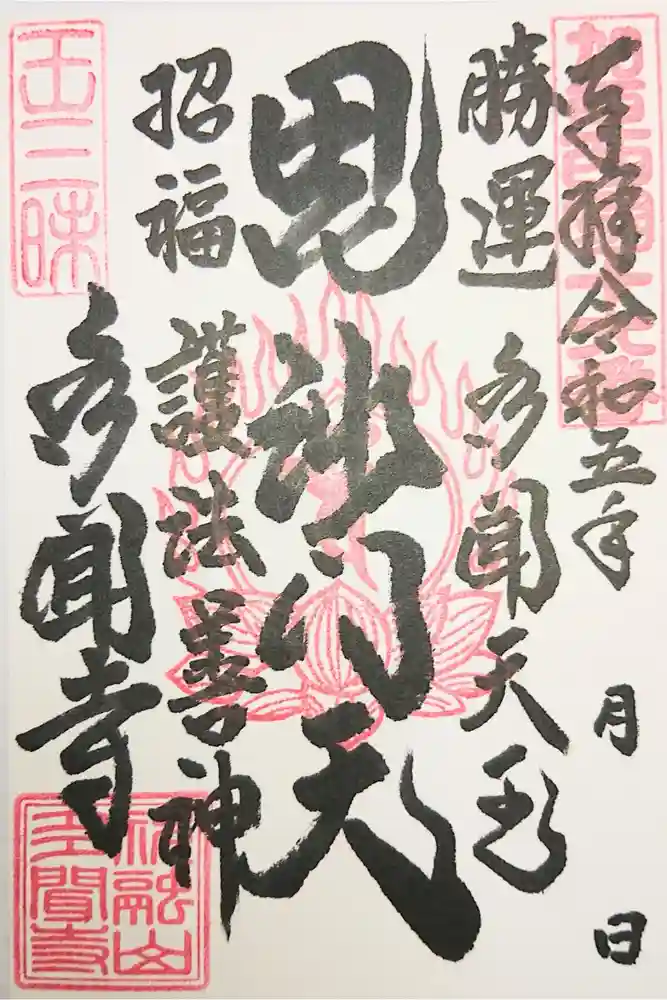 奉拝 令和五年 月 日
勝運 多聞天王
毘沙門天
招福 護法善神
王三昧
多聞寺
祝融山
多聞寺